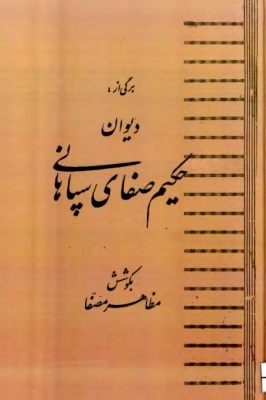 برگی از:
دیوان
حکیم صفای سپاهانی
بکوشش
مظاهر مصفا